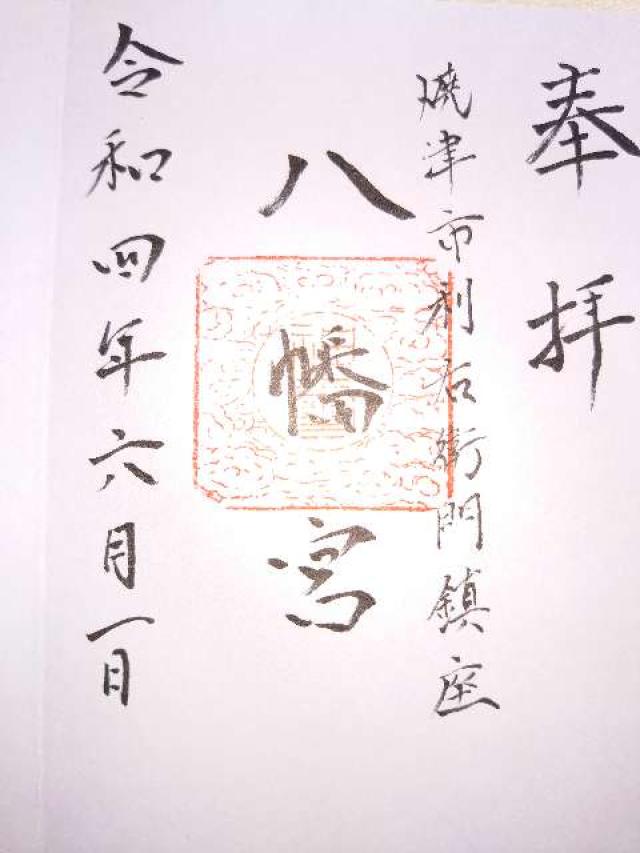 奉拝
焼津市利右衛門鎮座
八幡宮
令和四年六月一日